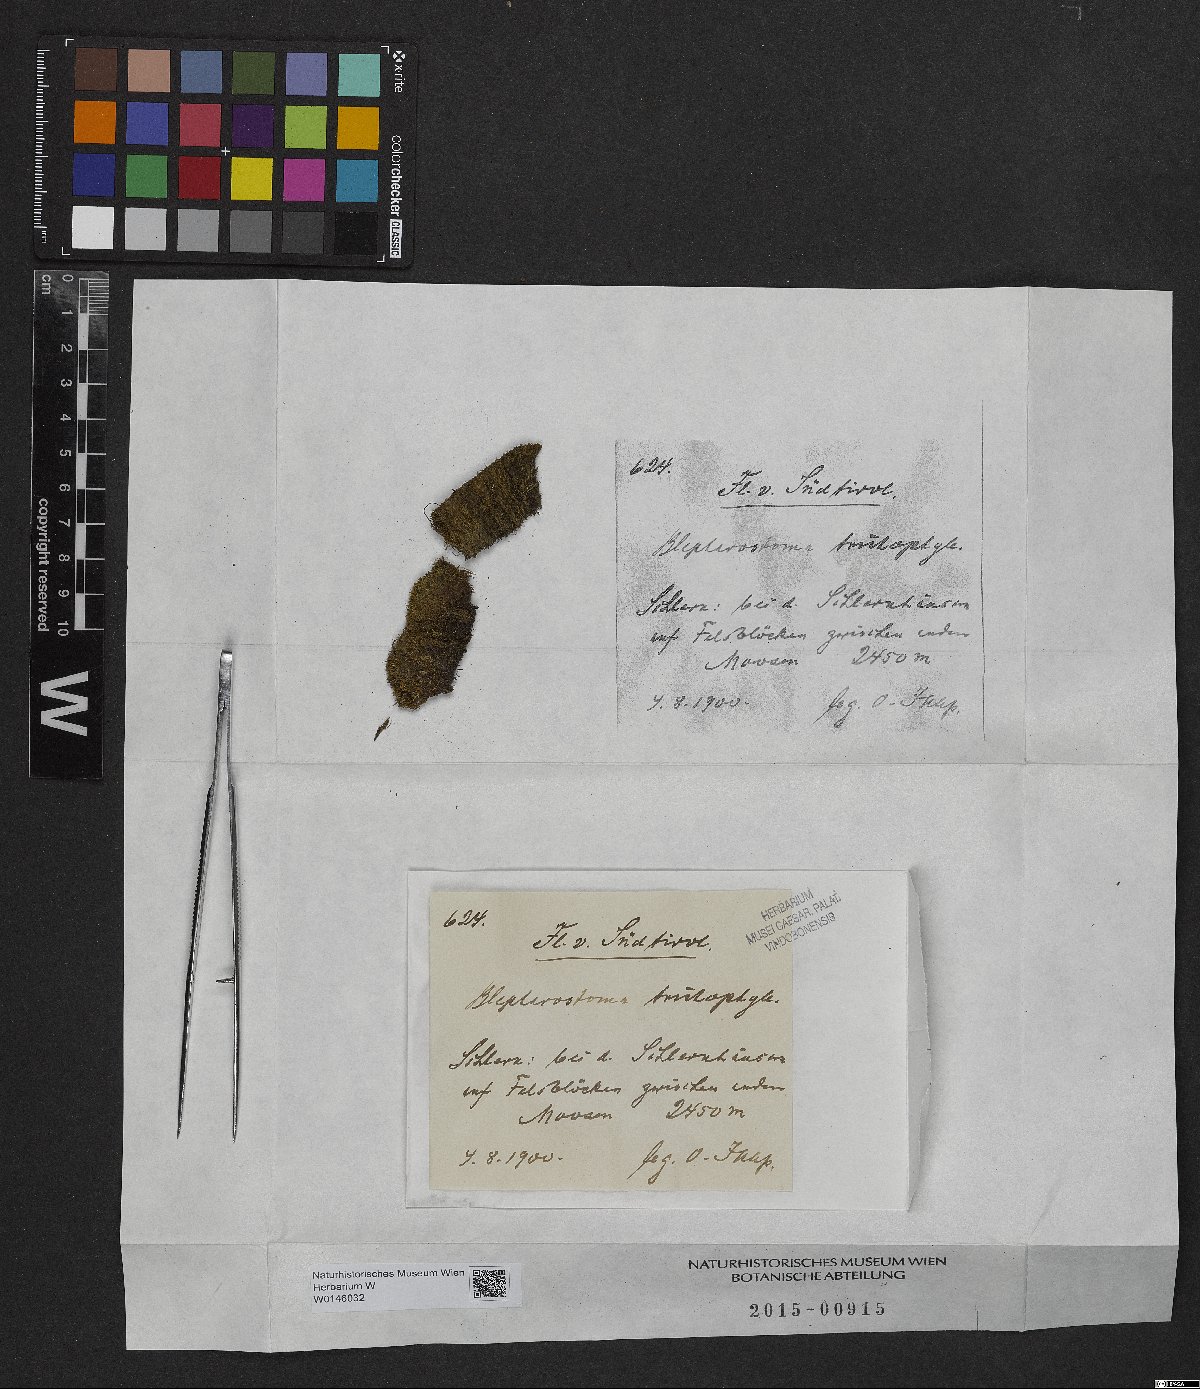 x·rite
colorchecker CLASSIC
cm 0 1 2 3 4 5 6 7 8 9 10
copyright reserved
W
624.
Fl. v. Südtirol.
Blepharostoma trichophyll.
Schlern: bei d. Schlernhäusern
auf Felsblöcken zwischen andern
Moosen 2450 m
8.1900. leg. O.
624.
Fl. v. Südtirol.
Blepharostoma trichophyll.
Schlern: bei d. Schlernhäusern
auf Felsblöcken zwischen andern
Moosen 2450 m
8.1900. leg. O.
HERBARIUM
MUSEI CAESAR. PALAT.
VINDOBONENSIS
Naturhistorisches Museum Wien
Herbarium W
W0146032
NATURHISTORISCHES MUSEUM WIEN
BOTANISCHE ABTEILUNG
2015-00915